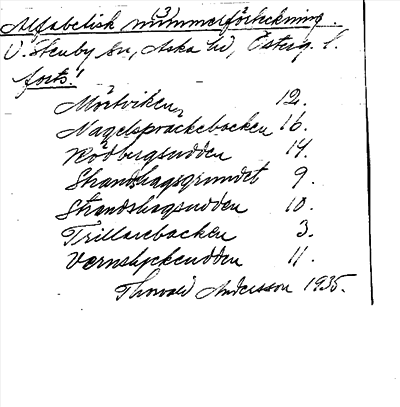 3)
Alfabetisk nummerförteckning.
V. Stenby sn, Aska hd, Österg. l.
forts!
Mörtviken 12.
Nagelsprackebacken 16.
Rödbergsudden 14.
Strandhagsgrundet 9.
Strandshagsudden 10.
Trillarebacken 3.
Vernslyckeudden 11.
Thorvald Andersson 1935.